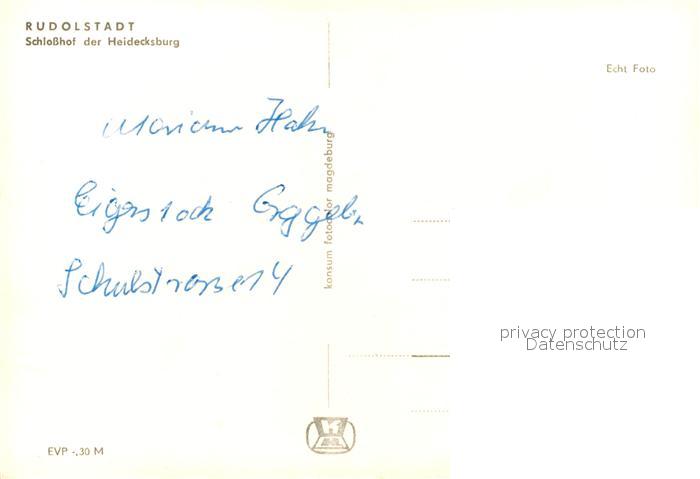 RUDOLSTADT
Schloßhof der Heidecksburg
Echt Foto
Hahn
konsum fotocolor magdeburg
Schulstrasse 14
privacy protection
Datenschutz
EVP -,30 M